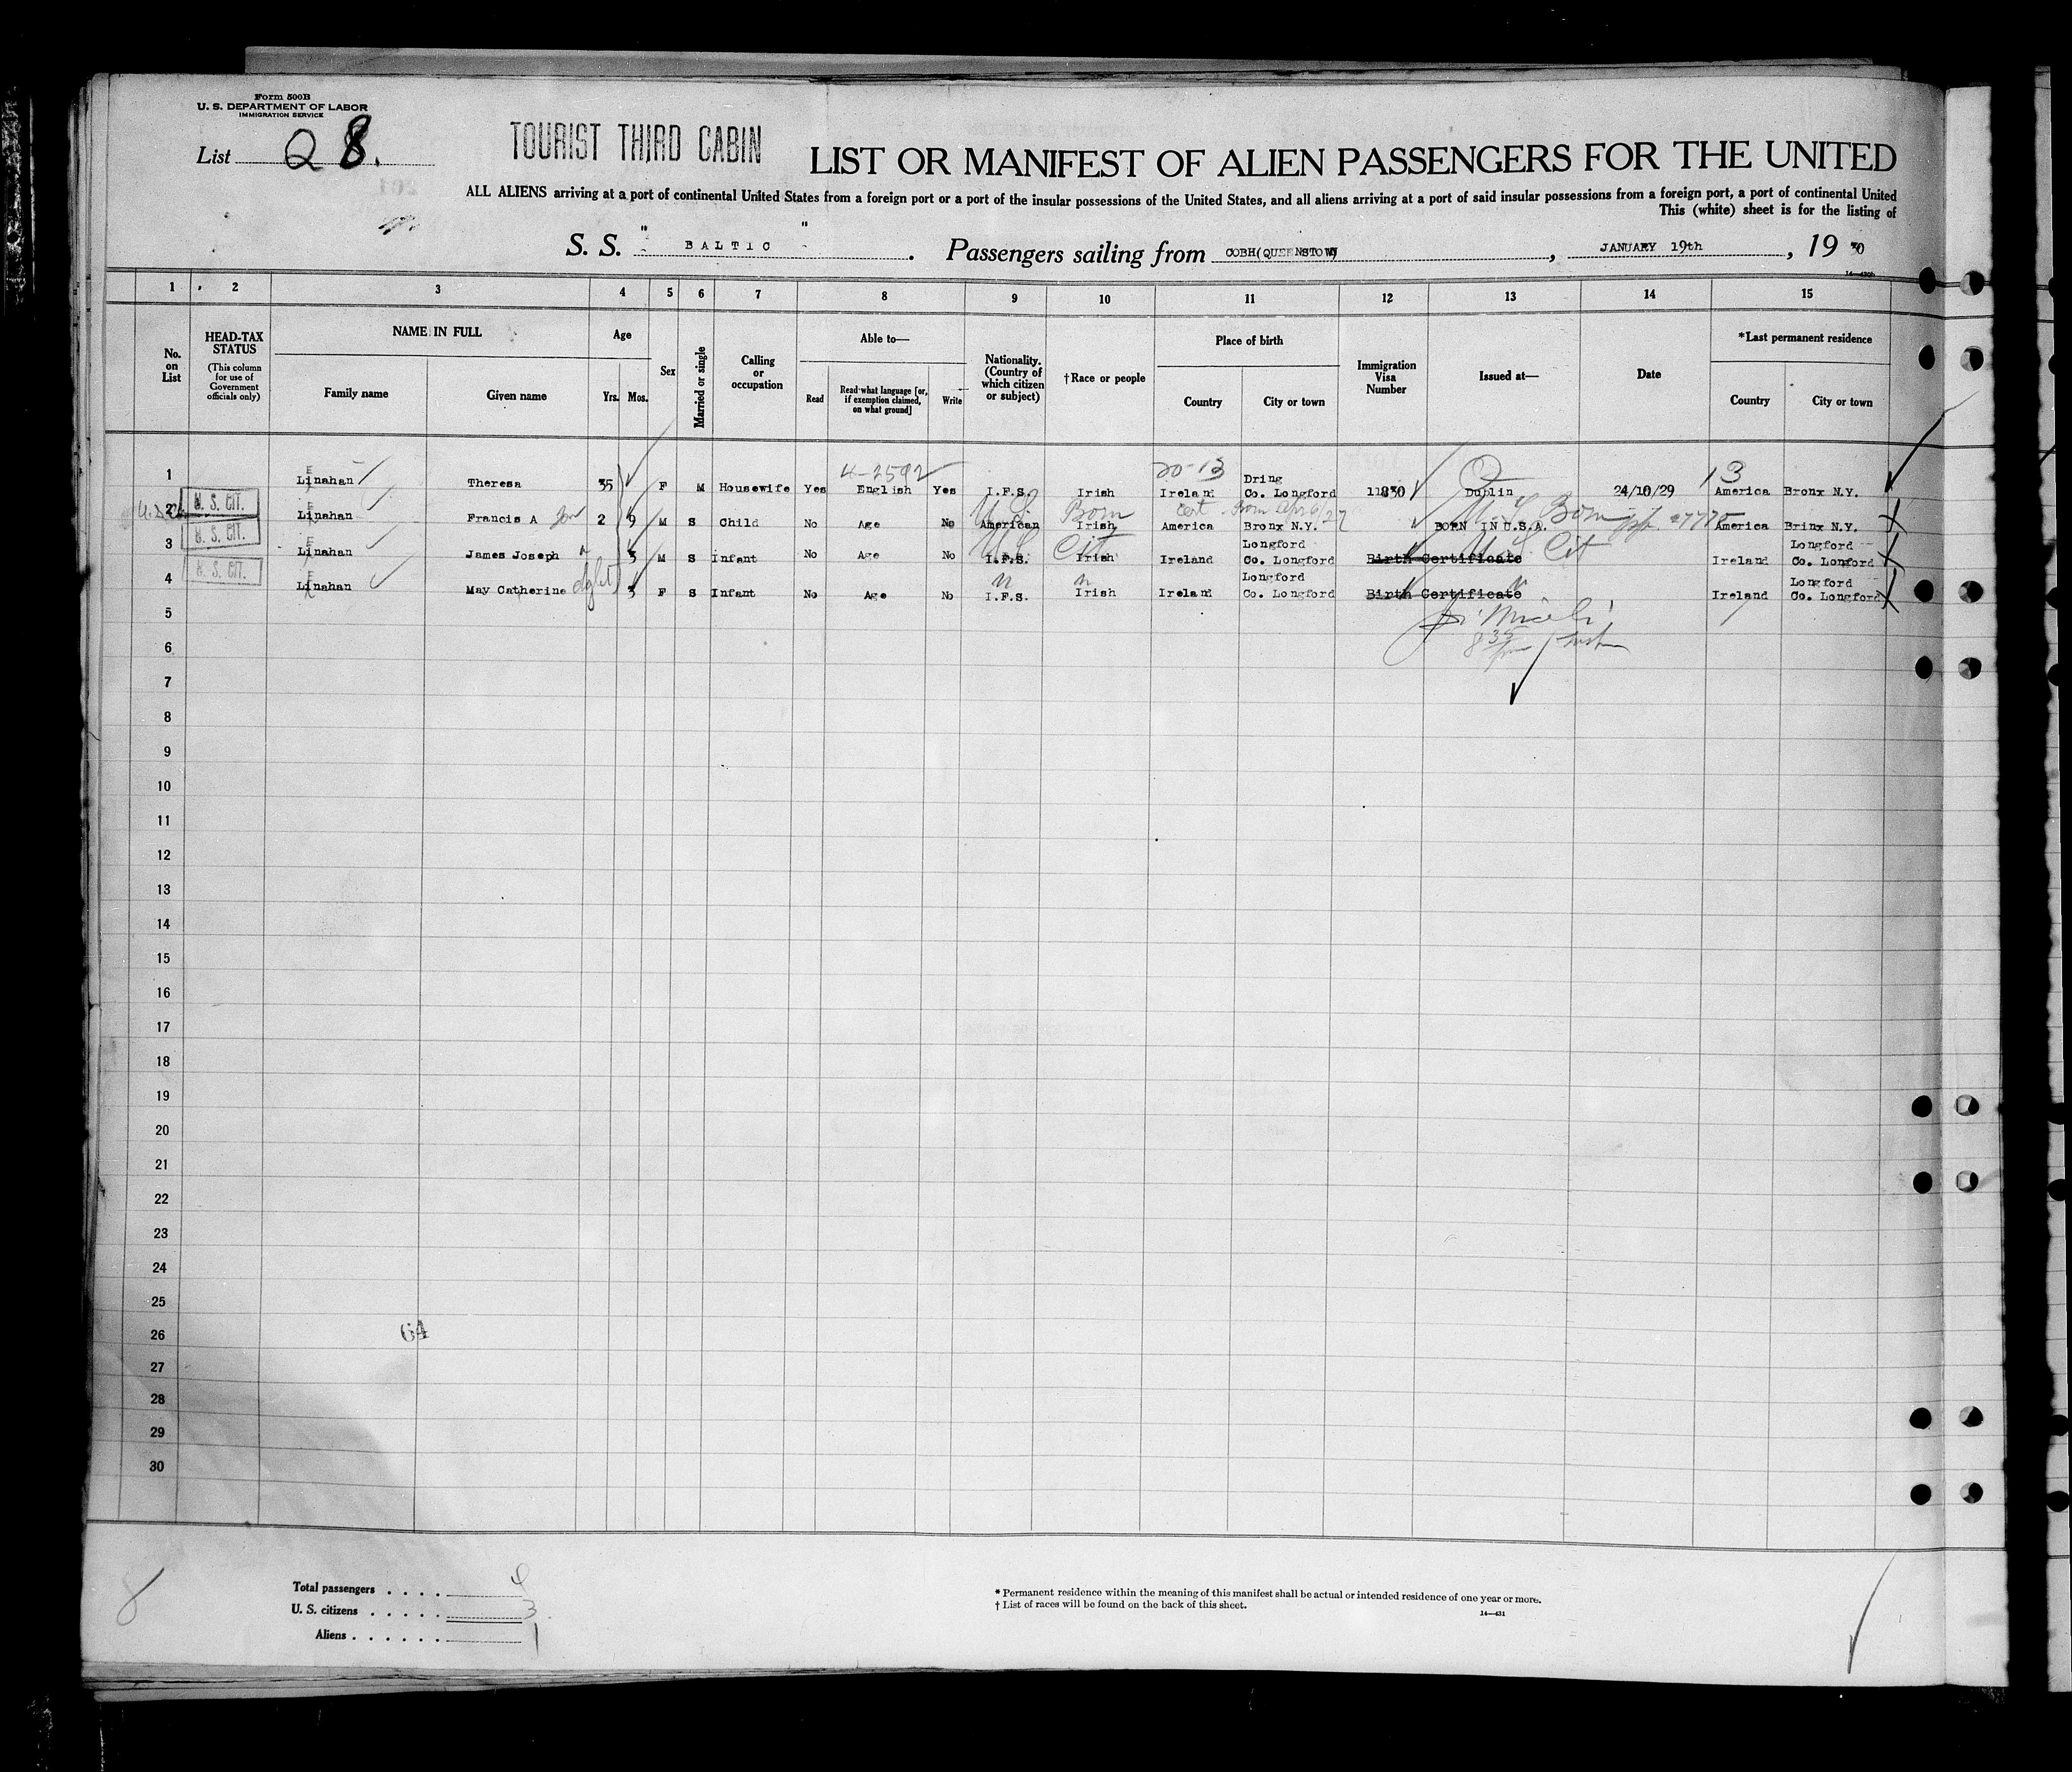 Form 500B
U. S. DEPARTMENT OF LABOR
IMMIGRATION SERVICE
List 28.
TOURIST THIRD CABIN
LIST OR MANIFEST OF ALIEN PASSENGERS FOR THE UNITED
ALL ALIENS arriving at a port of continental United States from a foreign port or a port of the insular possessions of the United States, and all aliens arriving at a port of said insular possessions from a foreign port, a port of continental United
This (white) sheet is for the listing of
S. S. " BALTIC " . Passengers sailing from COBH(QUEENSTOWN) , JANUARY 19th , 19 30
1 2 3 4 5 6 7 8 9 10 11 12 13 14 15
No. on List
HEAD-TAX STATUS
(This column for use of Government officials only)
NAME IN FULL
Family name Given name
Age
Yrs. Mos.
Sex
Married or single
Calling or occupation
Able to—
Read Read what language [or, if exemption claimed, on what ground] Write
Nationality. (Country of which citizen or subject)
†Race or people
Place of birth
Country City or town
Immigration Visa Number
Issued at—
Date
*Last permanent residence
Country City or town
4-2592 20-13 13
1 Linahan Theresa 35 F M Housewife Yes English Yes I.F.S. Irish Ireland Dring Co. Longford 11830 Dublin 24/10/29 America Bronx N.Y.
U.S. Born Cert U.S. Born
2 U. S. CIT. Linahan Francis A 2 9 M S Child No Age No American Irish America Bronx N.Y. BORN IN U.S.A. America Brinx N.Y.
U.S. Cit U S Cit
3 U. S. CIT. Linahan James Joseph 3 M S Infant No Age No I.F.S. Irish Ireland Longford Co. Longford Birth Certificate Ireland Longford Co. Longford
4 U. S. CIT. Linahan May Catherine 3 F S Infant No Age No I.F.S. Irish Ireland Longford Co. Longford Birth Certificate Ireland Longford Co. Longford
5
6
7
8
9
10
11
12
13
14
15
16
17
18
19
20
21
22
23
24
25
26
64
27
28
29
30
8
Total passengers . . . . 4
U. S. citizens . . . . . 3
Aliens . . . . . . 1
* Permanent residence within the meaning of this manifest shall be actual or intended residence of one year or more.
† List of races will be found on the back of this sheet.
14—431